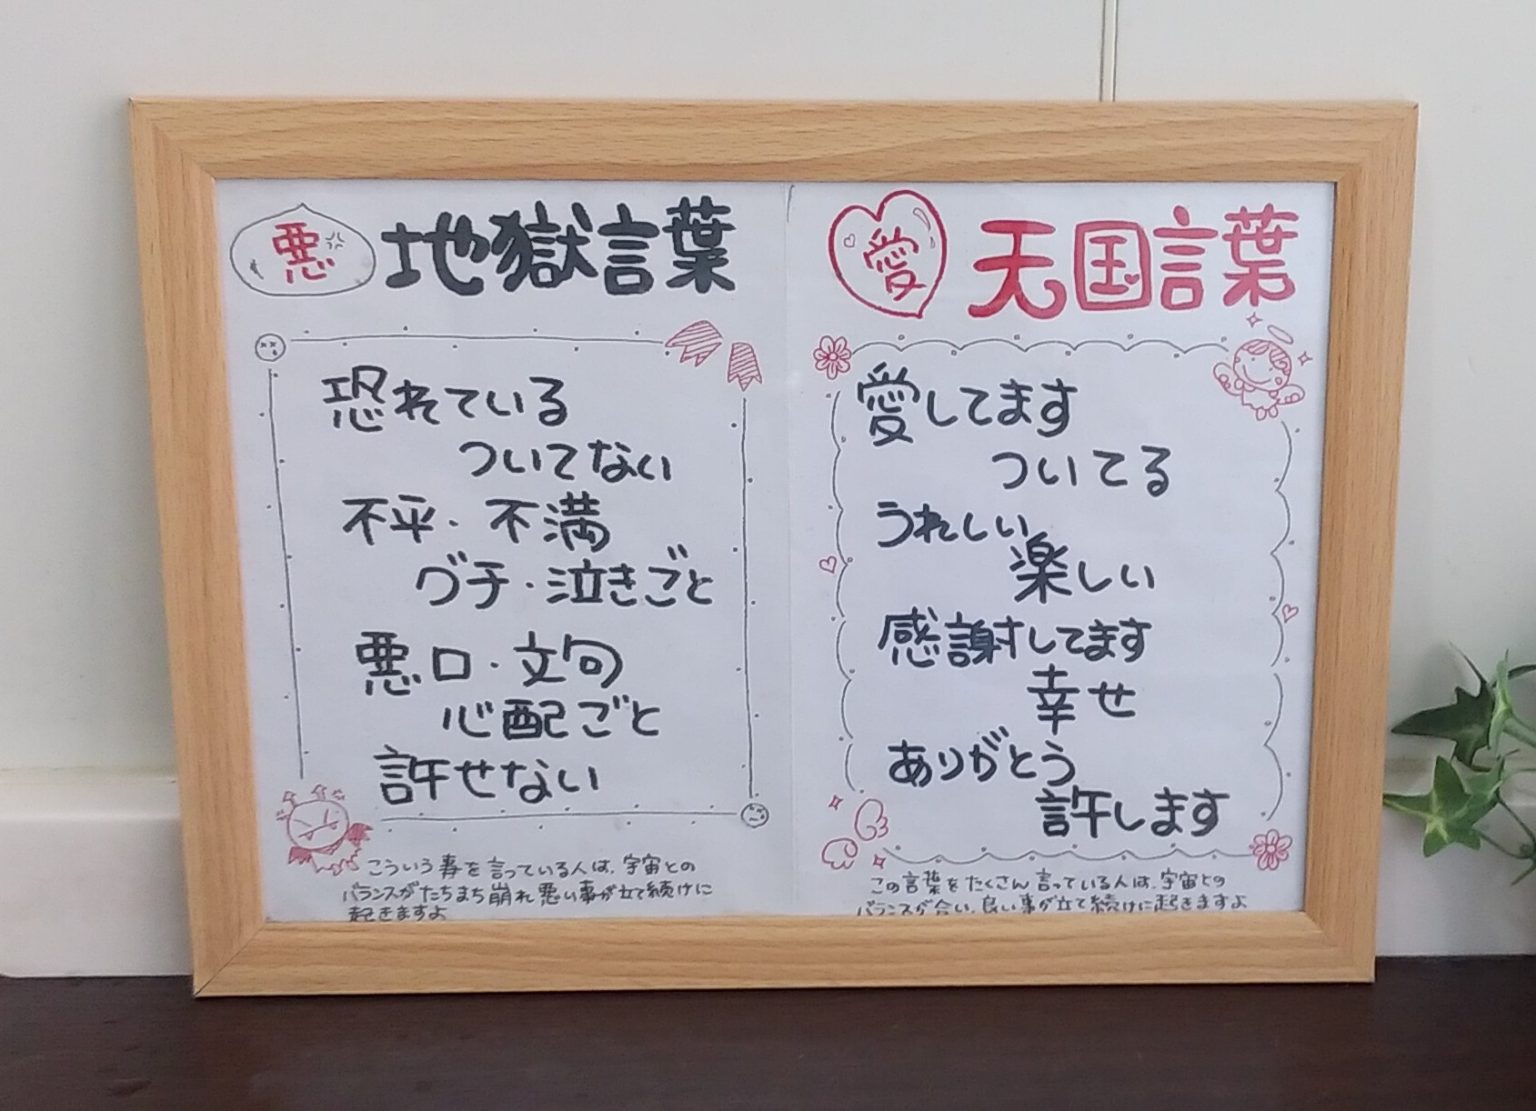 悪
地獄言葉
恐れている
ついてない
不平・不満
グチ・泣きごと
悪口・文句
心配ごと
許せない
こういう事を言っている人は、宇宙との
バランスがたちまち崩れ悪い事が立て続けに
起きますよ
愛
天国言葉
愛してます
ついてる
うれしい
楽しい
感謝してます
幸せ
ありがとう
許します
この言葉をたくさん言っている人は、宇宙との
バランスが合い、良い事が立て続けに起きますよ